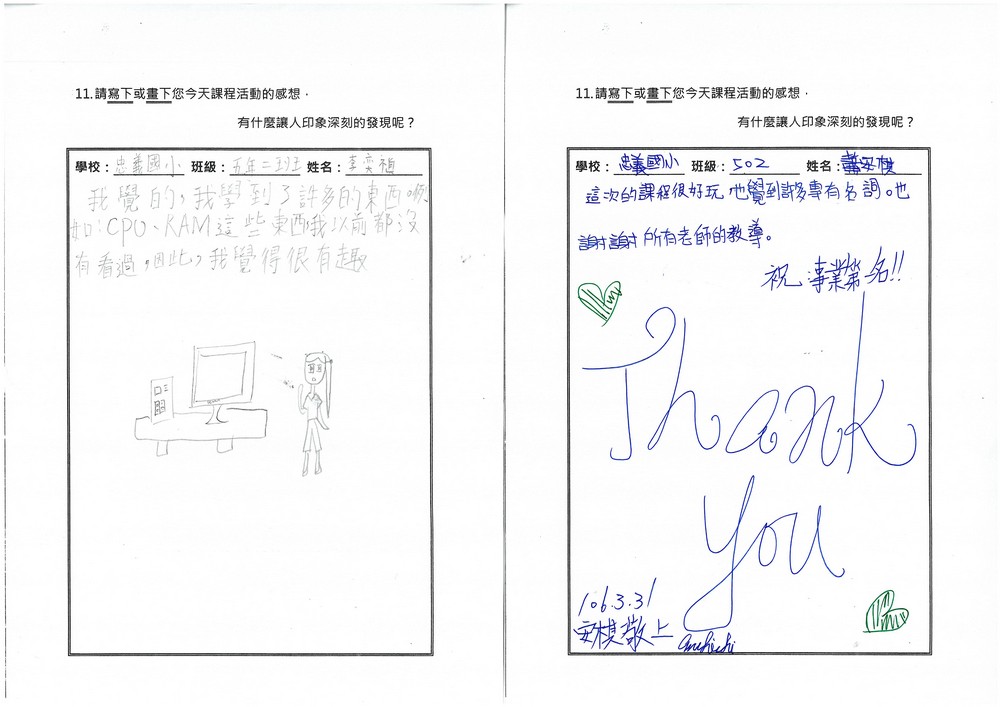 11.請寫下或畫下您今天課程活動的感想，
有什麼讓人印象深刻的發現呢？
學校：忠義國小 班級：五年二班班 姓名：李奕禎
我覺的，我學到了許多的東西喲
如：CPO、KAM這些東西我以前都沒
有看過，因此，我覺得很有趣
11.請寫下或畫下您今天課程活動的感想，
有什麼讓人印象深刻的發現呢？
學校：忠義國小 班級：502 姓名：
這次的課程很好玩也覺到許多專有名詞。也
謝謝所有老師的教導。
祝 事業第一名!!
Thank
You
106.3.31
安棋敬上